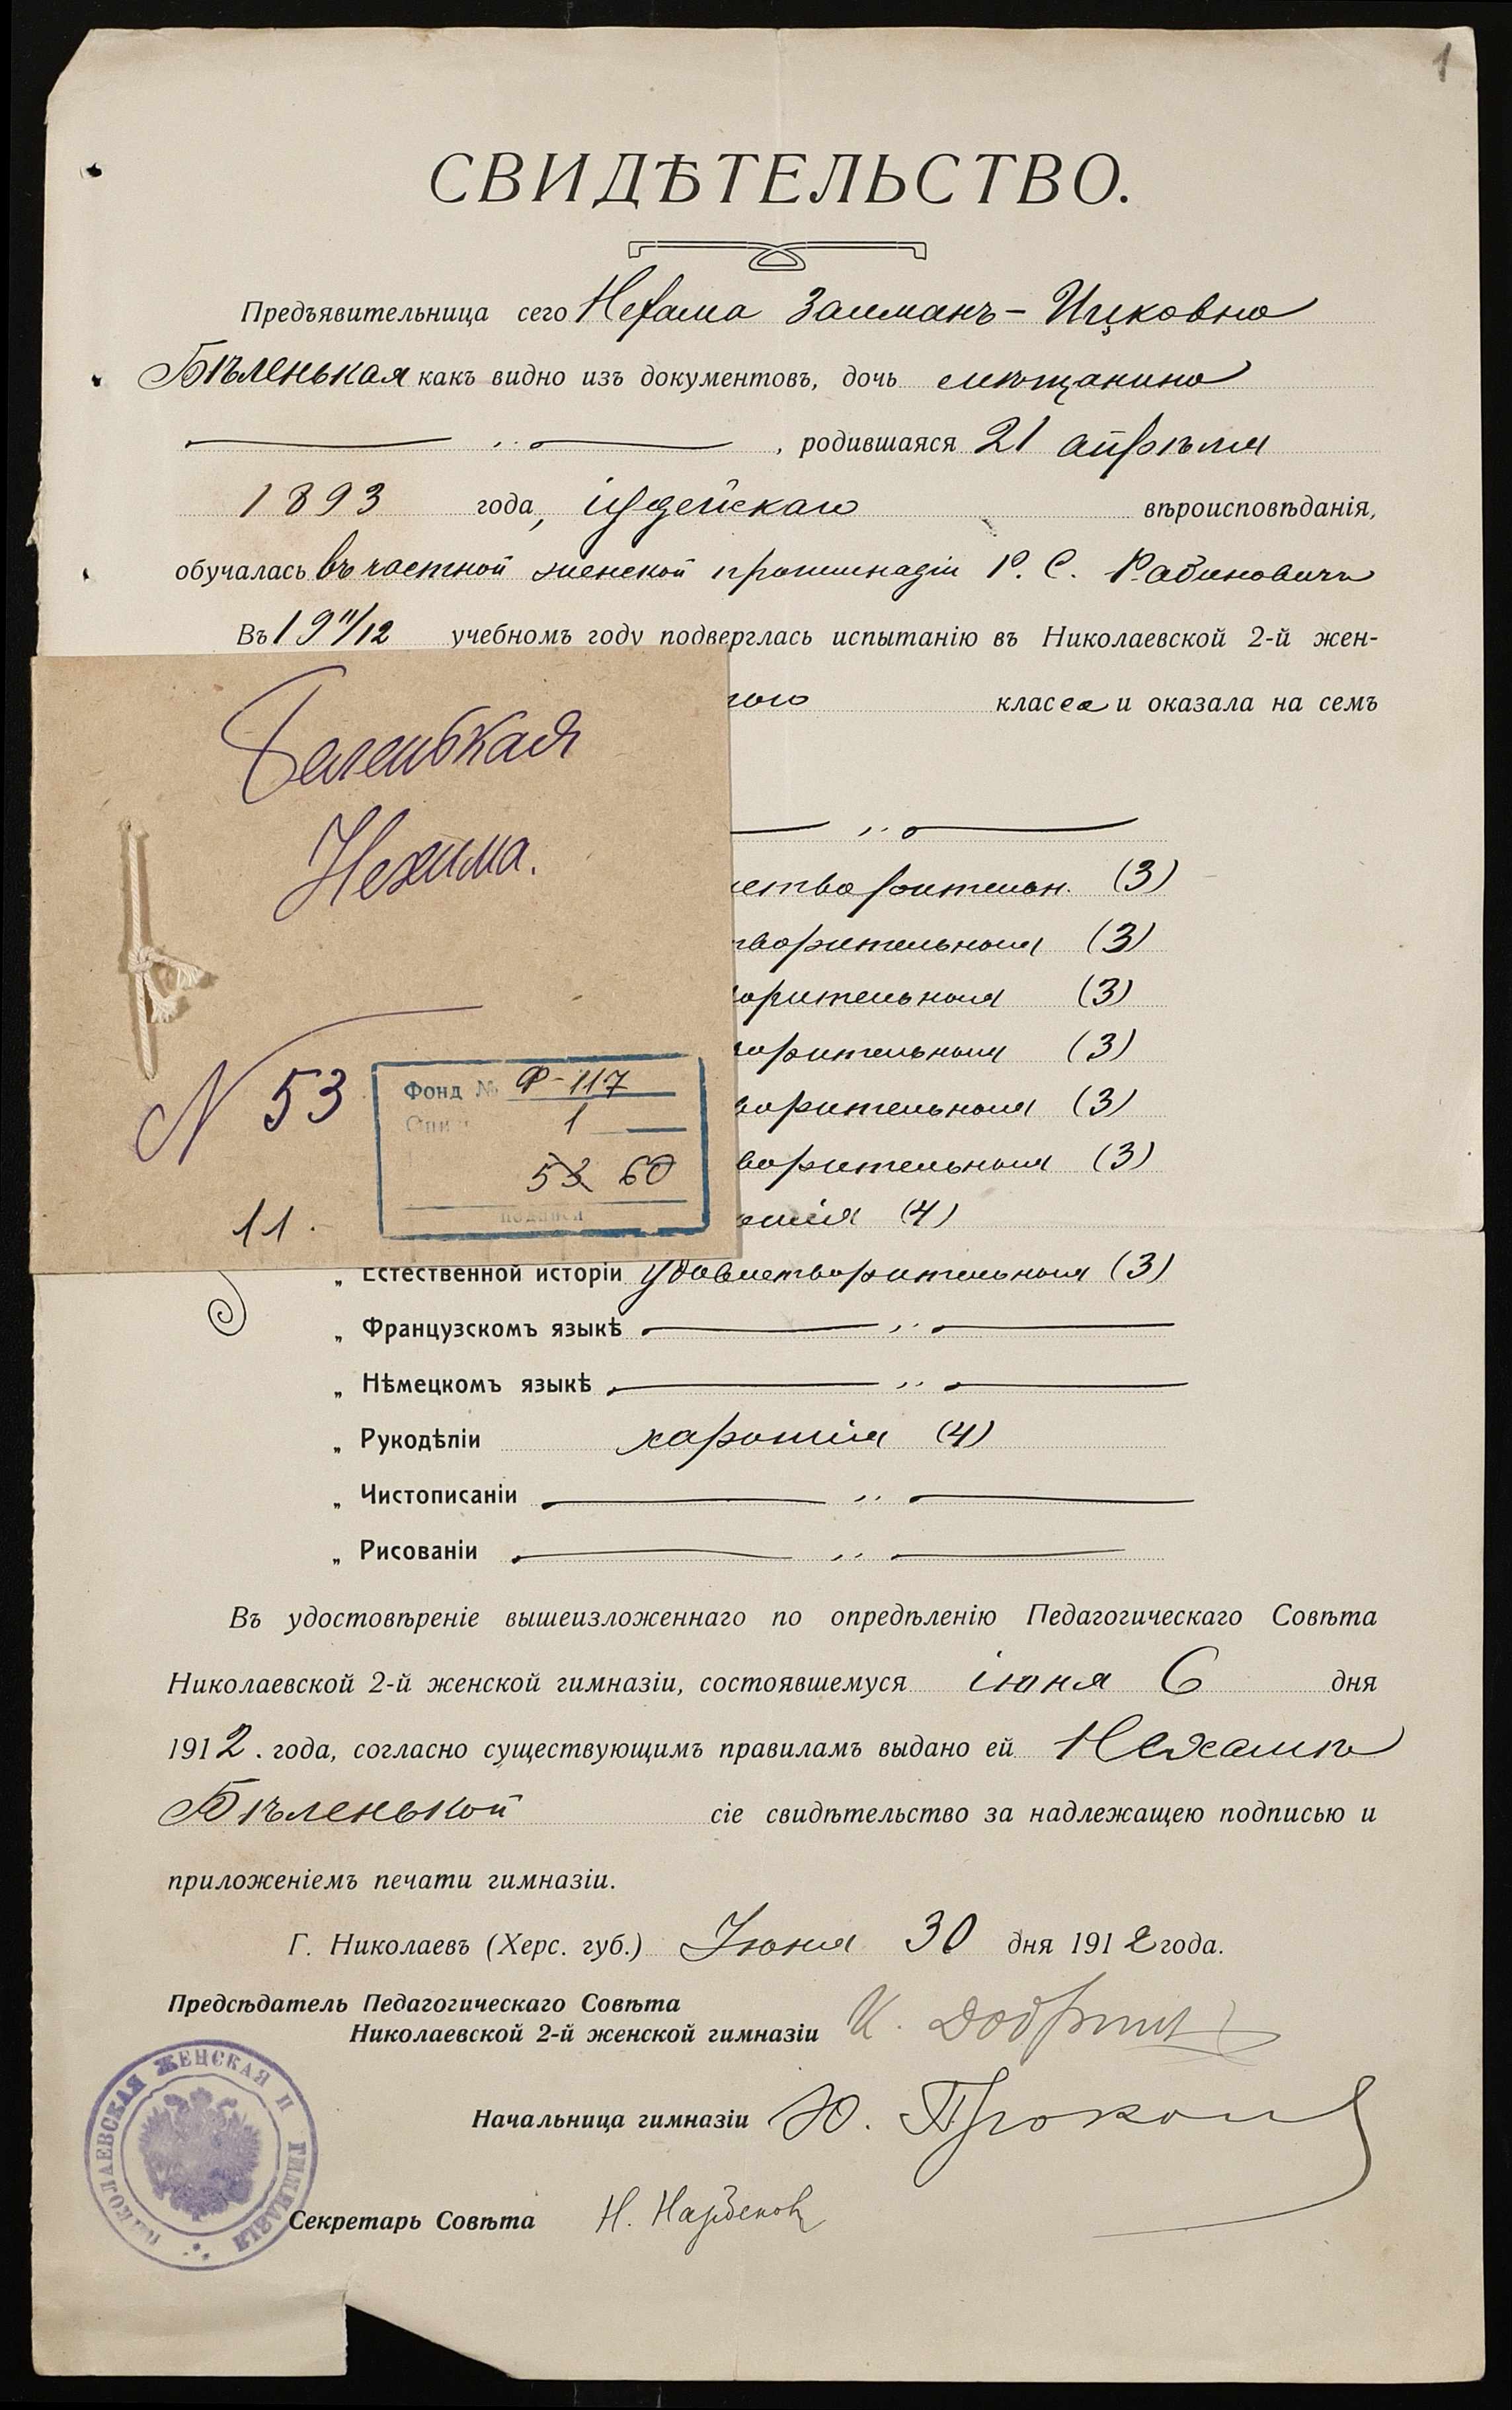 1
СВИДѢТЕЛЬСТВО.
Предъявительница сего Нехама Залманъ-Ицковна
Бѣленькая какъ видно изъ документовъ, дочь мѣщанина
, родившаяся 21 апрѣля
1893 года, іудейскаго вѣроисповѣданія,
обучалась въ частной женской прогимназіи Р. С. Рабиновичъ
Въ 1911/12 учебномъ году подверглась испытанію въ Николаевской 2-й жен-
класса и оказала на семъ
Беленькая
Нехима.
N 53
Фонд № Ф-117
Опи 1
53 60
подписи
11.
(3)
творительныя (3)
орительныя (3)
орительныя (3)
ворительныя (3)
ворительныя (3)
(4)
„ Естественной исторіи удовлетворительныя (3)
„ Французскомъ языкѣ
„ Нѣмецкомъ языкѣ
„ Рукодѣліи хорошія (4)
„ Чистописаніи
„ Рисованіи
Въ удостовѣреніе вышеизложеннаго по опредѣленію Педагогическаго Совѣта
Николаевской 2-й женской гимназіи, состоявшемуся іюня 6 дня
1912. года, согласно существующимъ правиламъ выдано ей Нехамѣ
Бѣленькой сіе свидѣтельство за надлежащею подписью и
приложеніемъ печати гимназіи.
Г. Николаевъ (Херс. губ.) Іюня 30 дня 1912 года.
Предсѣдатель Педагогическаго Совѣта
Николаевской 2-й женской гимназіи
Начальница гимназіи Ю.
Секретарь Совѣта Н.
НИКОЛАЕВСКАЯ ЖЕНСКАЯ II ГИМНАЗІЯ